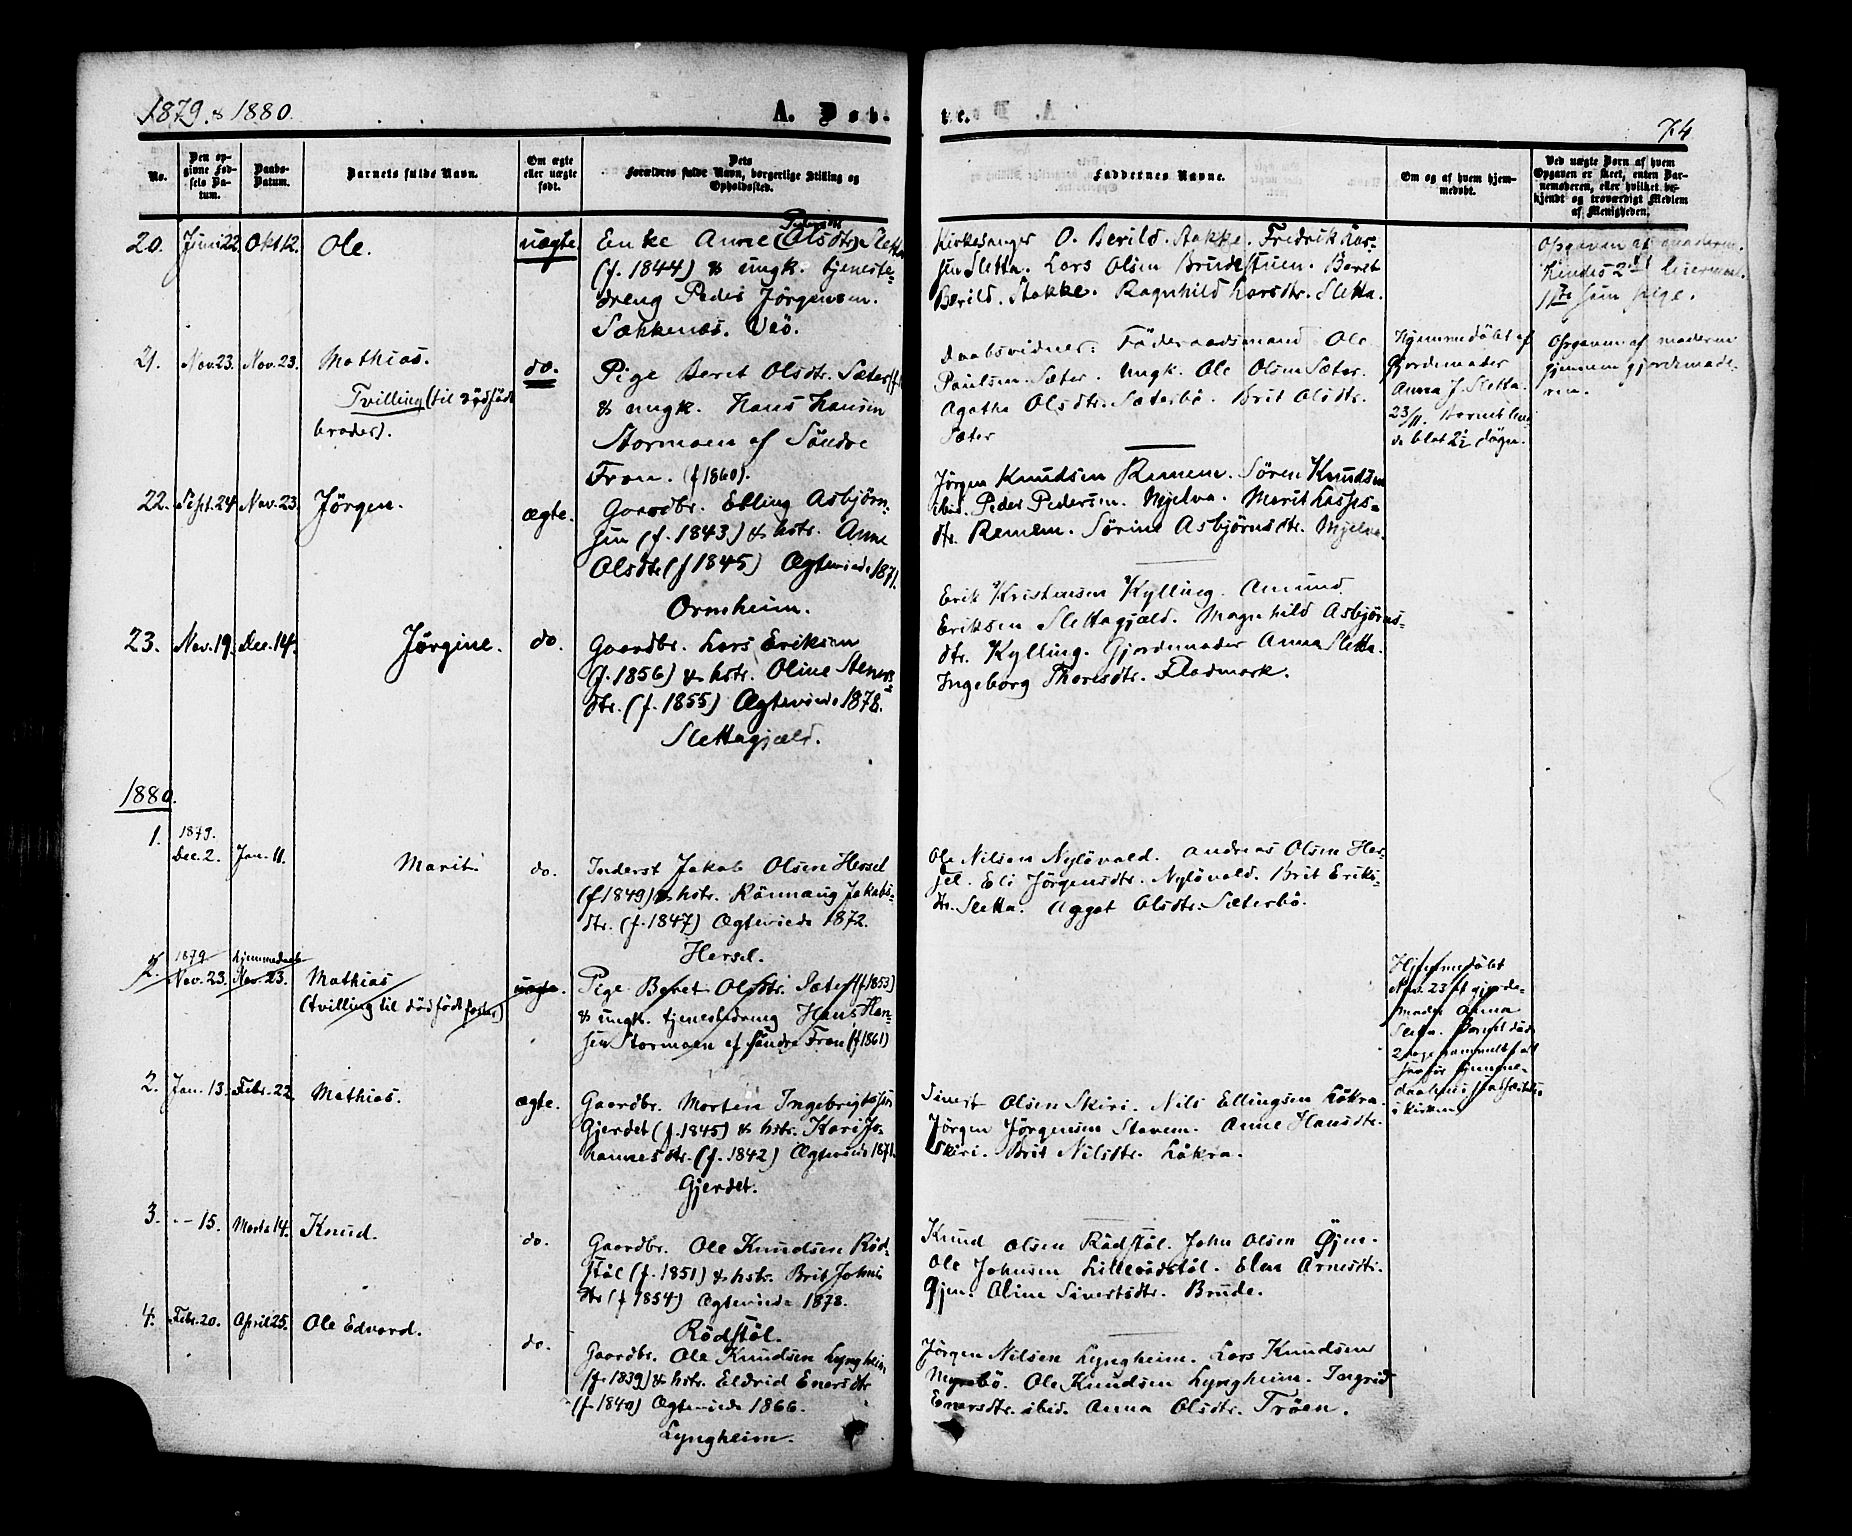 1879 & 1880.
A. Døb-
te.
74
No.
Den op-
givne Fød-
sels Da-
tum.
Daabs-
Datum.
Barnets fulde Navn.
Om ægte
eller uægte
født.
Dets
Forældres fulde Navn, borgerlige Stilling og
Opholdssted.
Faddernes Navne.
Om og af hvem hjem-
medøbt.
Ved uægte Børn af hvem
Opgaven er skeet, enten Bar-
nemoderen, eller hvilket be-
kjendt og troværdigt Medlem
af Menigheden.
20. Juni 22 Okt 12. Ole. uægte
Enke Anne (Olsdtr) Sletta
(f. 1844) & ungk. tjeneste-
dreng Peder Jørgensen.
Sækkenæs. Veö.
Kirkesanger O. Berild. Stokke. Fredrik Lar-
sen Sletta. Lars Olsen Brudestuen. Beret
Berild. Stokke. Ragnhild Larsdtr. Sletta.
Opgaven af moderen.
Hendes 2det leiermaal.
1ste som pige.
21. Nov. 23. Nov. 23. Mathias.
Tvilling (til dødfødt
broder).
do.
Pige Beret Olsdtr. Sæter
& ungk. Hans Hansen
Stormoen af Söndre
Fron. (f 1860).
Daabsvidner: Föderaadsmand Ole
Paulsen Sæter. Ungk. Ole Olsen Sæter.
Agatha Olsdtr. Sæterbö. Brit Olsdtr.
Sæter
Hjemmedöbt af
Gjordemoder
Anna J. Sletta
23/11. Barnet lev-
de blot 2½ døgn.
Opgaven af moderen
gjennem gjordemode-
ren.
22. Sept. 24 Nov. 23. Jørgen. ægte.
Gaardbr. Elling Asbjørn-
sen (f. 1843) & hstr. Anne
Olsdtr (f 1845) Ægteviede 1871.
Ormheim.
Jörgen Knudsen Remem. Sören Knudsen
ibid. Peder Pedersen. Mjelva. Marit Lasses-
dtr. Remem. Sörine Asbjørnsdtr. Mjelva.
23. Nov. 19. Dec. 14. Jørgine. do.
Gaardbr. Lars Eriksen
(f. 1856) & hstr. Oline Steners-
dtr. (f. 1855) Ægteviede 1878.
Slettagjæld.
Erik Kristensen Kylling. Amund
Eriksen Slettagjæld. Magnhild Asbjørns-
dtr. Kylling. Gjordemoder Anna Sletta.
Ingeborg Thoresdtr. Fladmark.
1880.
1. 1879.
Dec. 2. Jan. 11. Marit. do.
Inderst Jakob Olsen Hersel
(f 1849) & hstr. Rönnaug Jakobs-
dtr. (f. 1847) Ægteviede 1872.
Hersel.
Ole Nilsen Nylövold. Andreas Olsen Her-
sel. Eli Jörgensdtr. Nylövold. Brit Eriks-
dtr. Sletta. Agget Olsdtr. Sæterbö.
2. 1879
Nov. 23. hjemmedaab
Nov. 23. Mathias
(tvilling til dödfödt foster)
uægte.
Pige Beret Olsdtr. Sæter (f 1853)
& ungk. tjenestedreng Hans Han-
sen Stormoen af Söndre Fron (f 1861)
Hjemmedöbt
Nov. 23 af gjorde-
moder Anna
Sletta. Barnet döde
2. Jan. 13. Febr. 22. Mathias. ægte.
Gaardbr. Morten Ingebrigtsen
Gjerdet (f. 1845) & hstr. Kari Jo-
hannesdtr. (f. 1842) Ægteviede 1871.
Gjerdet.
Sivert Olsen Skiri. Nils Ellingsen Løkra.
Jörgen Jörgensen Stavem. Anne Hansdtr.
Skiri. Brit Nilsdtr. Løkra.
3. - - 15. Marts 14. Knud. do.
Gaardbr. Ole Knudsen Röd-
stöl (f. 1851) & hstr. Brit Johns-
dtr (f 1854) Ægteviede 1878.
Rödstöl.
Knud Olsen Rödstöl. John Olsen Øjen.
Ole Johnsen Lillerödstöl. Elen Arnesdtr.
Øjen. Oline Sivertsdtr. Brude.
4. Febr. 20. April 25. Ole Edvard. do.
Gaardbr. Ole Knudsen Lyngheim
(f. 1839) & hstr. Eldrid Enersdtr
(f. 1840) Ægteviede 1866.
Lyngheim.
Jörgen Nilsen Lyngheim. Lars Knudsen
Myrebö. Ole Knudsen Lyngheim. Ingrid
Enersdtr. ibid. Anna Olsdtr. Tröen.